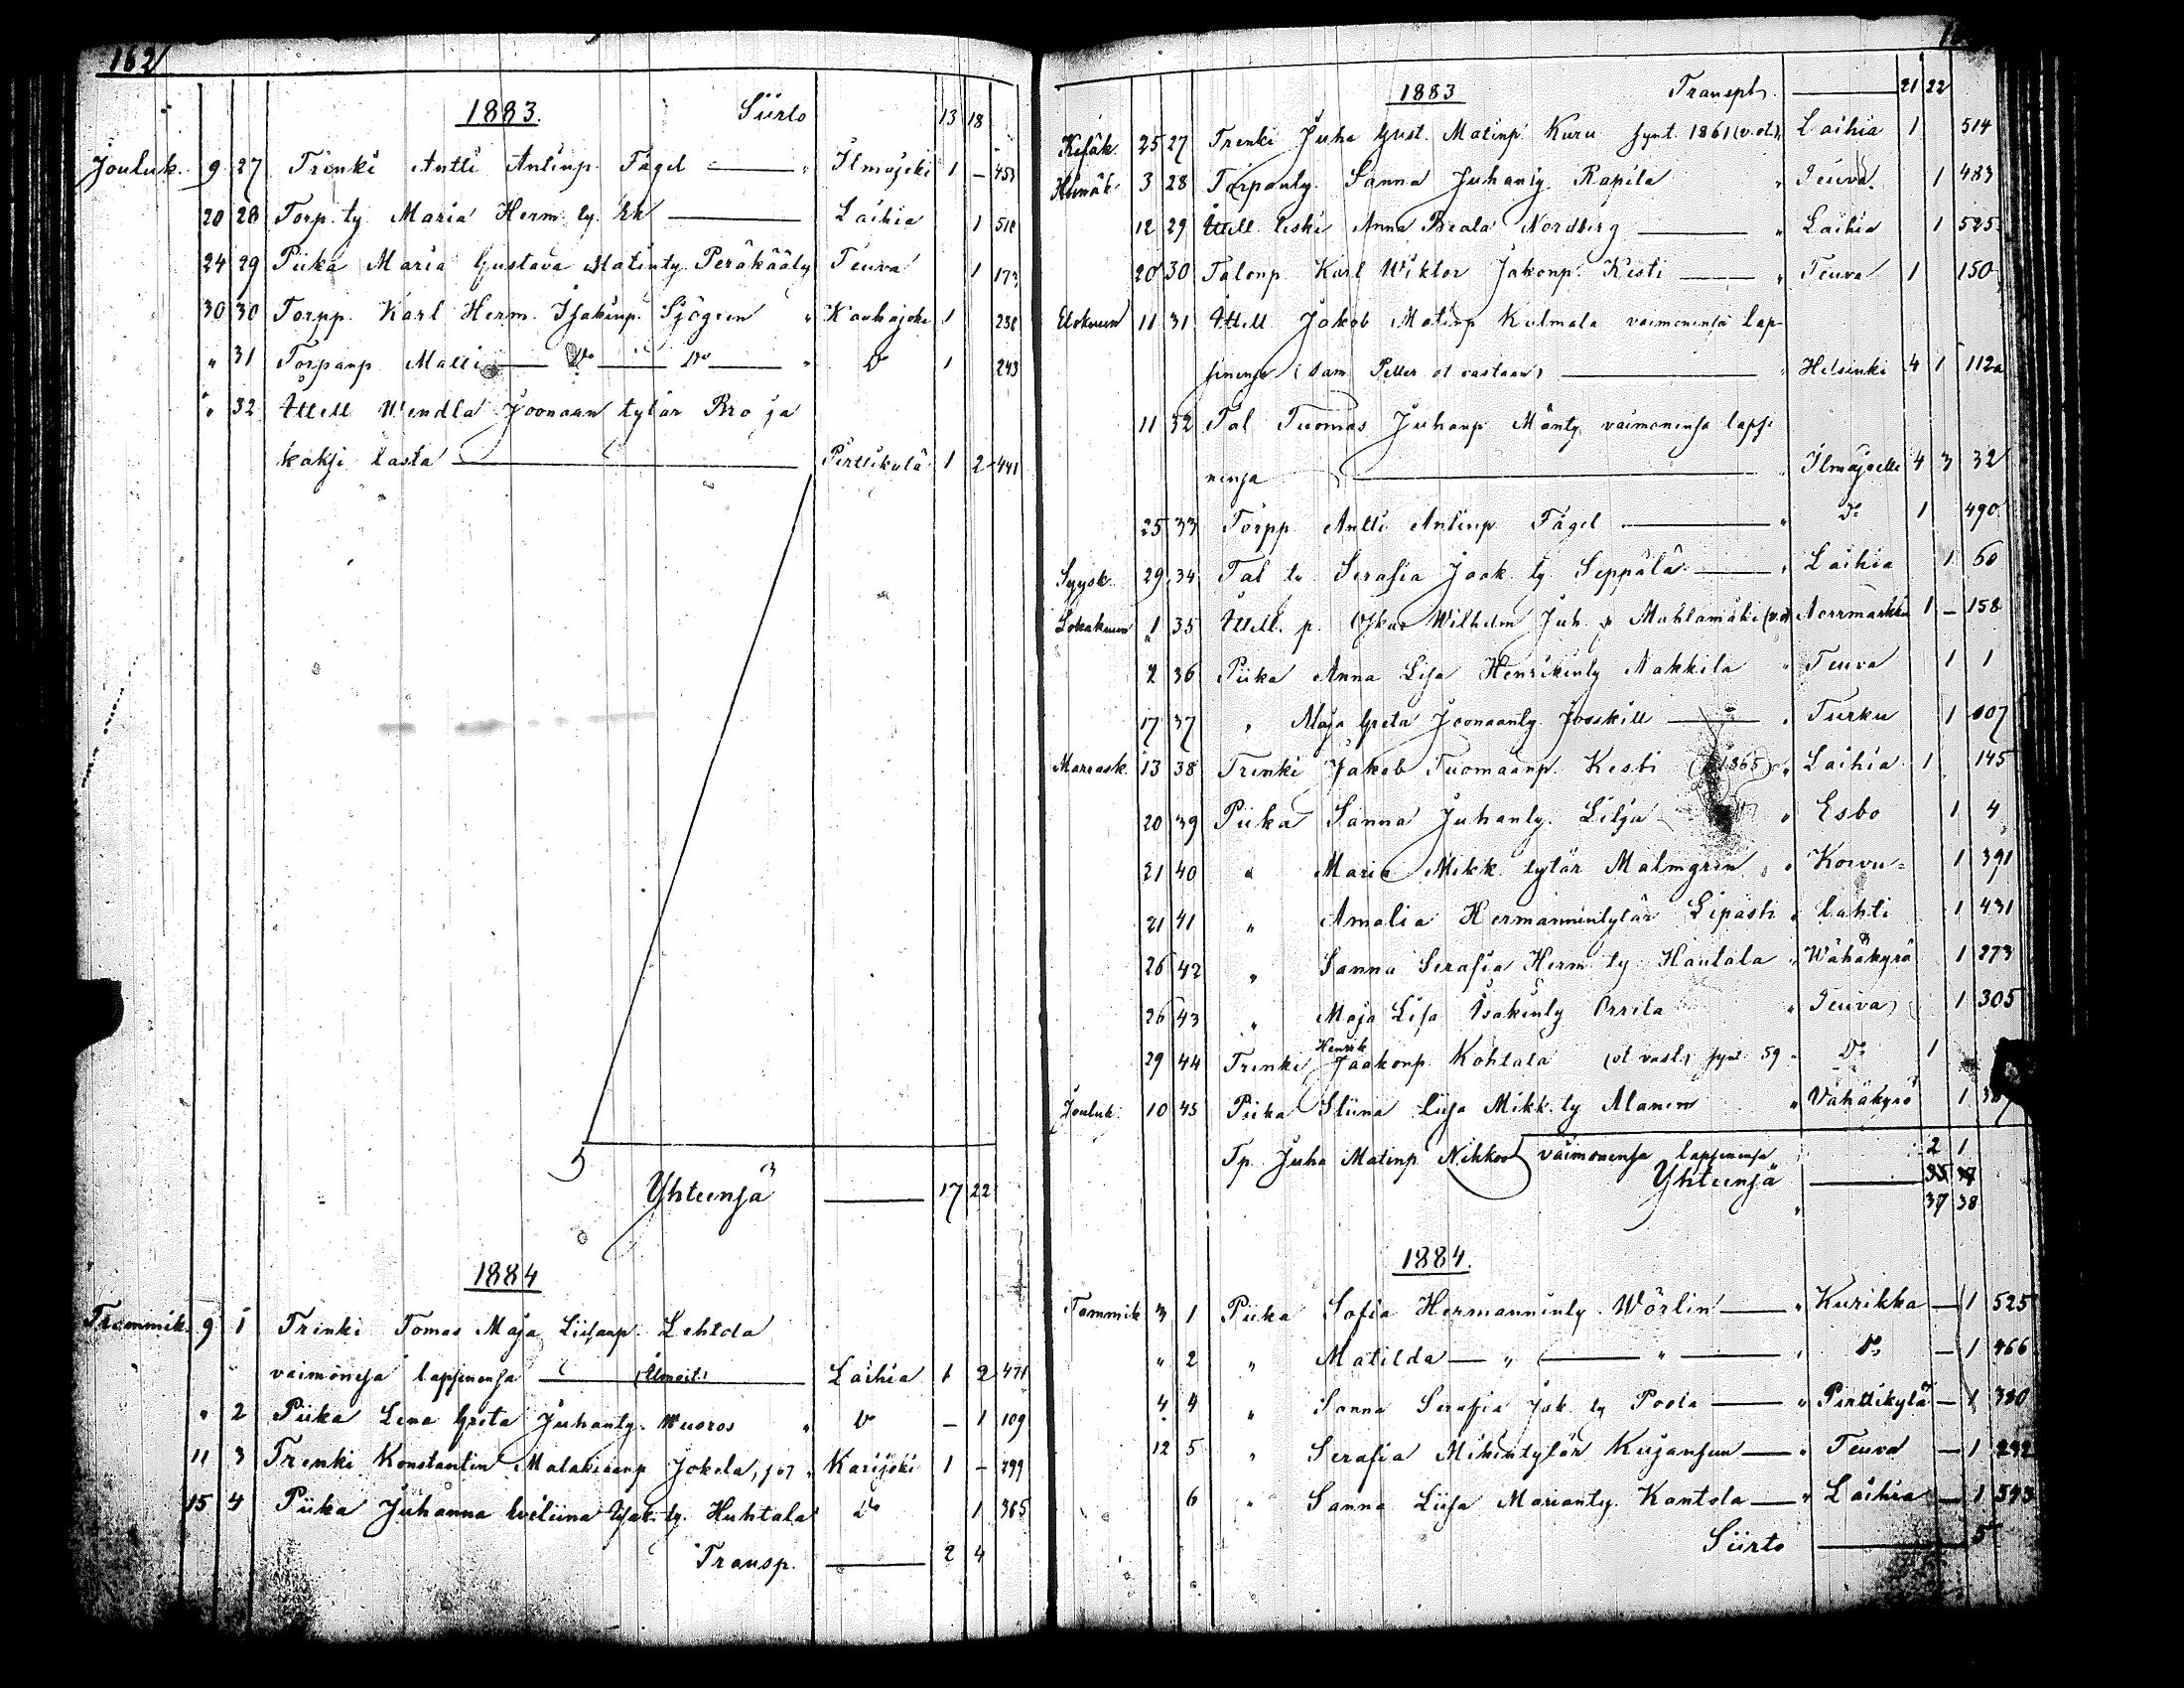 162
1883. Siirto 13 18
Jouluk. 9 27 Trenki Antti Antinp. Fågel — " Ilmajoki 1 — 453
20 28 Torp. ty. Maria Herm. ty. — Laihia 1
24 29 Piika Maria Gustava Matinty. Peräkääly Teuva 1 173
30 30 Torpp. Karl Herm. Isakinp. Sjögren " Kauhajoki 1
" 31 Torpanp Matti — Do — Do — " Do 1 243
" 32 Ittell Wendla Joonaan tytär Bro ja
kaksi lasta — Pirttikylä 1 2 441
Yhteensä — 17 22
1884
Tammik. 9 1 Trenki Tomas Maja Liisanp. Lehtola
vaimonsa lapsinensa — Laihia 1 2 471
" 2 Piika Lena Greta Juhanty. Wuoros " Do — 1 109
11 3 Trenki Konstantin Malakiaanp Jokela, " Karijoki 1 — 299
15 4 Piika Juhanna Eveliina ty. Huhtala Do 1 365
Transp. — 2 4
1883 Transpt. — 21 22
Kesäk. 25 27 Trenki Juha Gust. Matinp. Kuru synt. 1861 (v. ot.) Laihia 1 514
Heinäk. 3 28 Torpanty. Sanna Juhanty. Rapila " Teuva 1 483
12 29 Ittell. leski Anna Beata Nordberg — " Laihia 1 525
20 30 Talonp. Karl Wiktor Jakonp. Kesti — " Teuva 1 150
Elokuun 11 31 Ittell. Jakob Matinp Kulmala vaimonensa lap-
sinensa — " Helsinki 4 1 112a
11 32 Tal Tuomas Juhanp. Mänty vaimonensa lapsi
nensa — " Ilmajoelle 4 3 32
25 33 Torpp Antti Antinp. Fågel — " Do 1 490
Syysk. 29 34 Tal ty. Serafia Jaak. ty. Seppälä — " Laihia 1 60
Lokakuun 1 35 Ittell. p. Oskar Wilhelm Juh. p Muhlamäki Norrmarkku 1 — 158
2 36 Piika Anna Lisa Henrikinty Nakkila " Teuva 1 1
17 37 " Maja Greta Joonaanty. — " Turku 1 107
Marrask. 13 38 Trenki Jakob Tuomaanp. Kesti (1865) " Laihia 1 145
20 39 Piika Sanna Juhanty. Lilja " Esbo 1 4
21 40 " Maria Mikk. tytär Malmgren " Koivu= 1 391
21 41 " Amalia Hermannintytär Lipasti " lahti 1 431
26 42 " Sanna Serafia Herm ty Hautala " Wähäkyrö 1 273
26 43 " Maja Lisa Isakinty Orrela " Teuva 1 305
Henrik
29 44 Trenki Jaakonp. Kohtala (ot vast.) synt. 59 " Do 1
Jouluk. 10 45 Piika Stiina Liisa Mikk. ty Alanen " Vähäkyrö 1
Tp. Juha Matinp Nikkoo vaimonensa lapsinensa 2 1
Yhteensä — 35 37
" 37 38
1884.
Tammik 3 1 Piika Sofia Hermanninty. Wörlin — " Kurikka — 1 525
" 2 " Matilda — " — " — " Do — 1 466
4 4 " Sanna Serafia Jak. ty Poola — " Pirttikylä — 1 380
12 5 " Serafia Mikintytär Kujansuu — " Teuva — 1 242
6 " Sanna Liisa Marianty. Kantola — " Laihia — 1 543
Siirto — 5